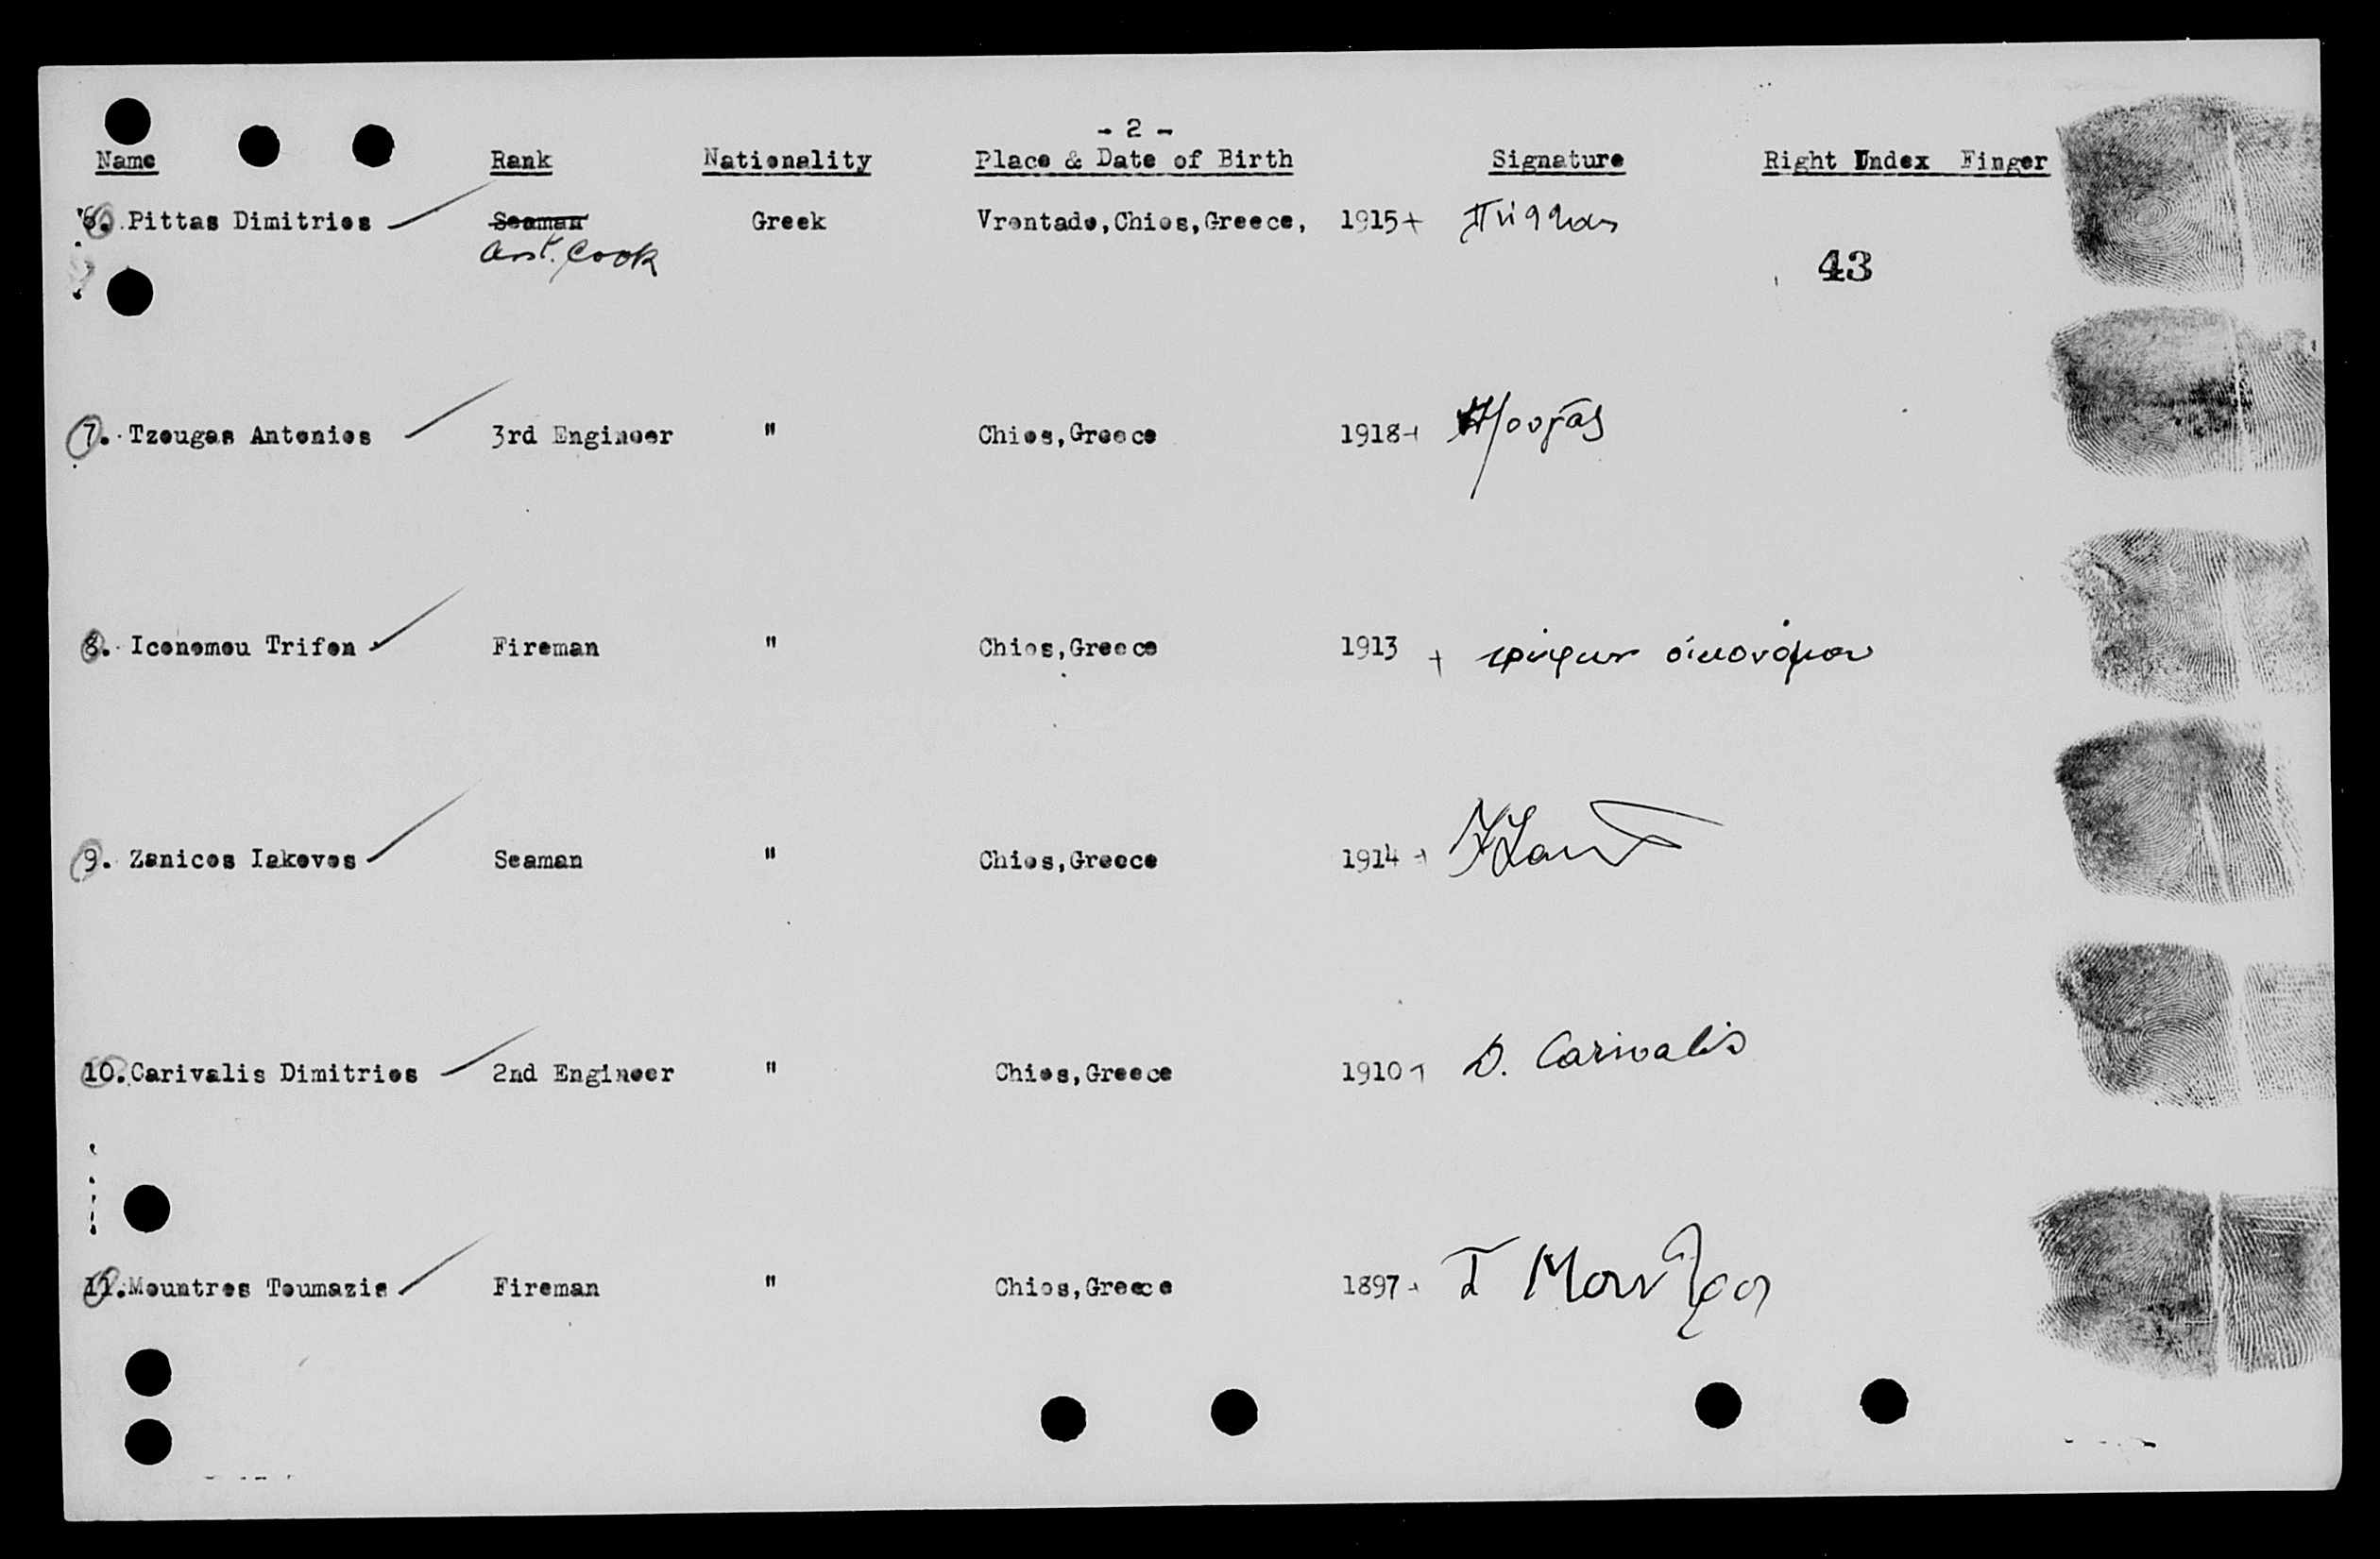 - 2 -
Name Rank Nationality Place & Date of Birth Signature Right Index Finger
6. Pittas Dimitrios Seaman Greek Vrontado, Chios, Greece, 1915 + Πιττας
Asst. Cook
43
7. Tzougas Antonios 3rd Engineer " Chios, Greece 1918 Τζουγάς
8. Iconomou Trifon Fireman " Chios, Greece 1913 + τρύφων οικονόμου
9. Zanicos Iakovos Seaman " Chios, Greece 1914
10. Carivalis Dimitrios 2nd Engineer " Chios, Greece 1910 D. Carivalis
11. Mountros Toumazis Fireman " Chios, Greece 1897 Τ Μουντρος